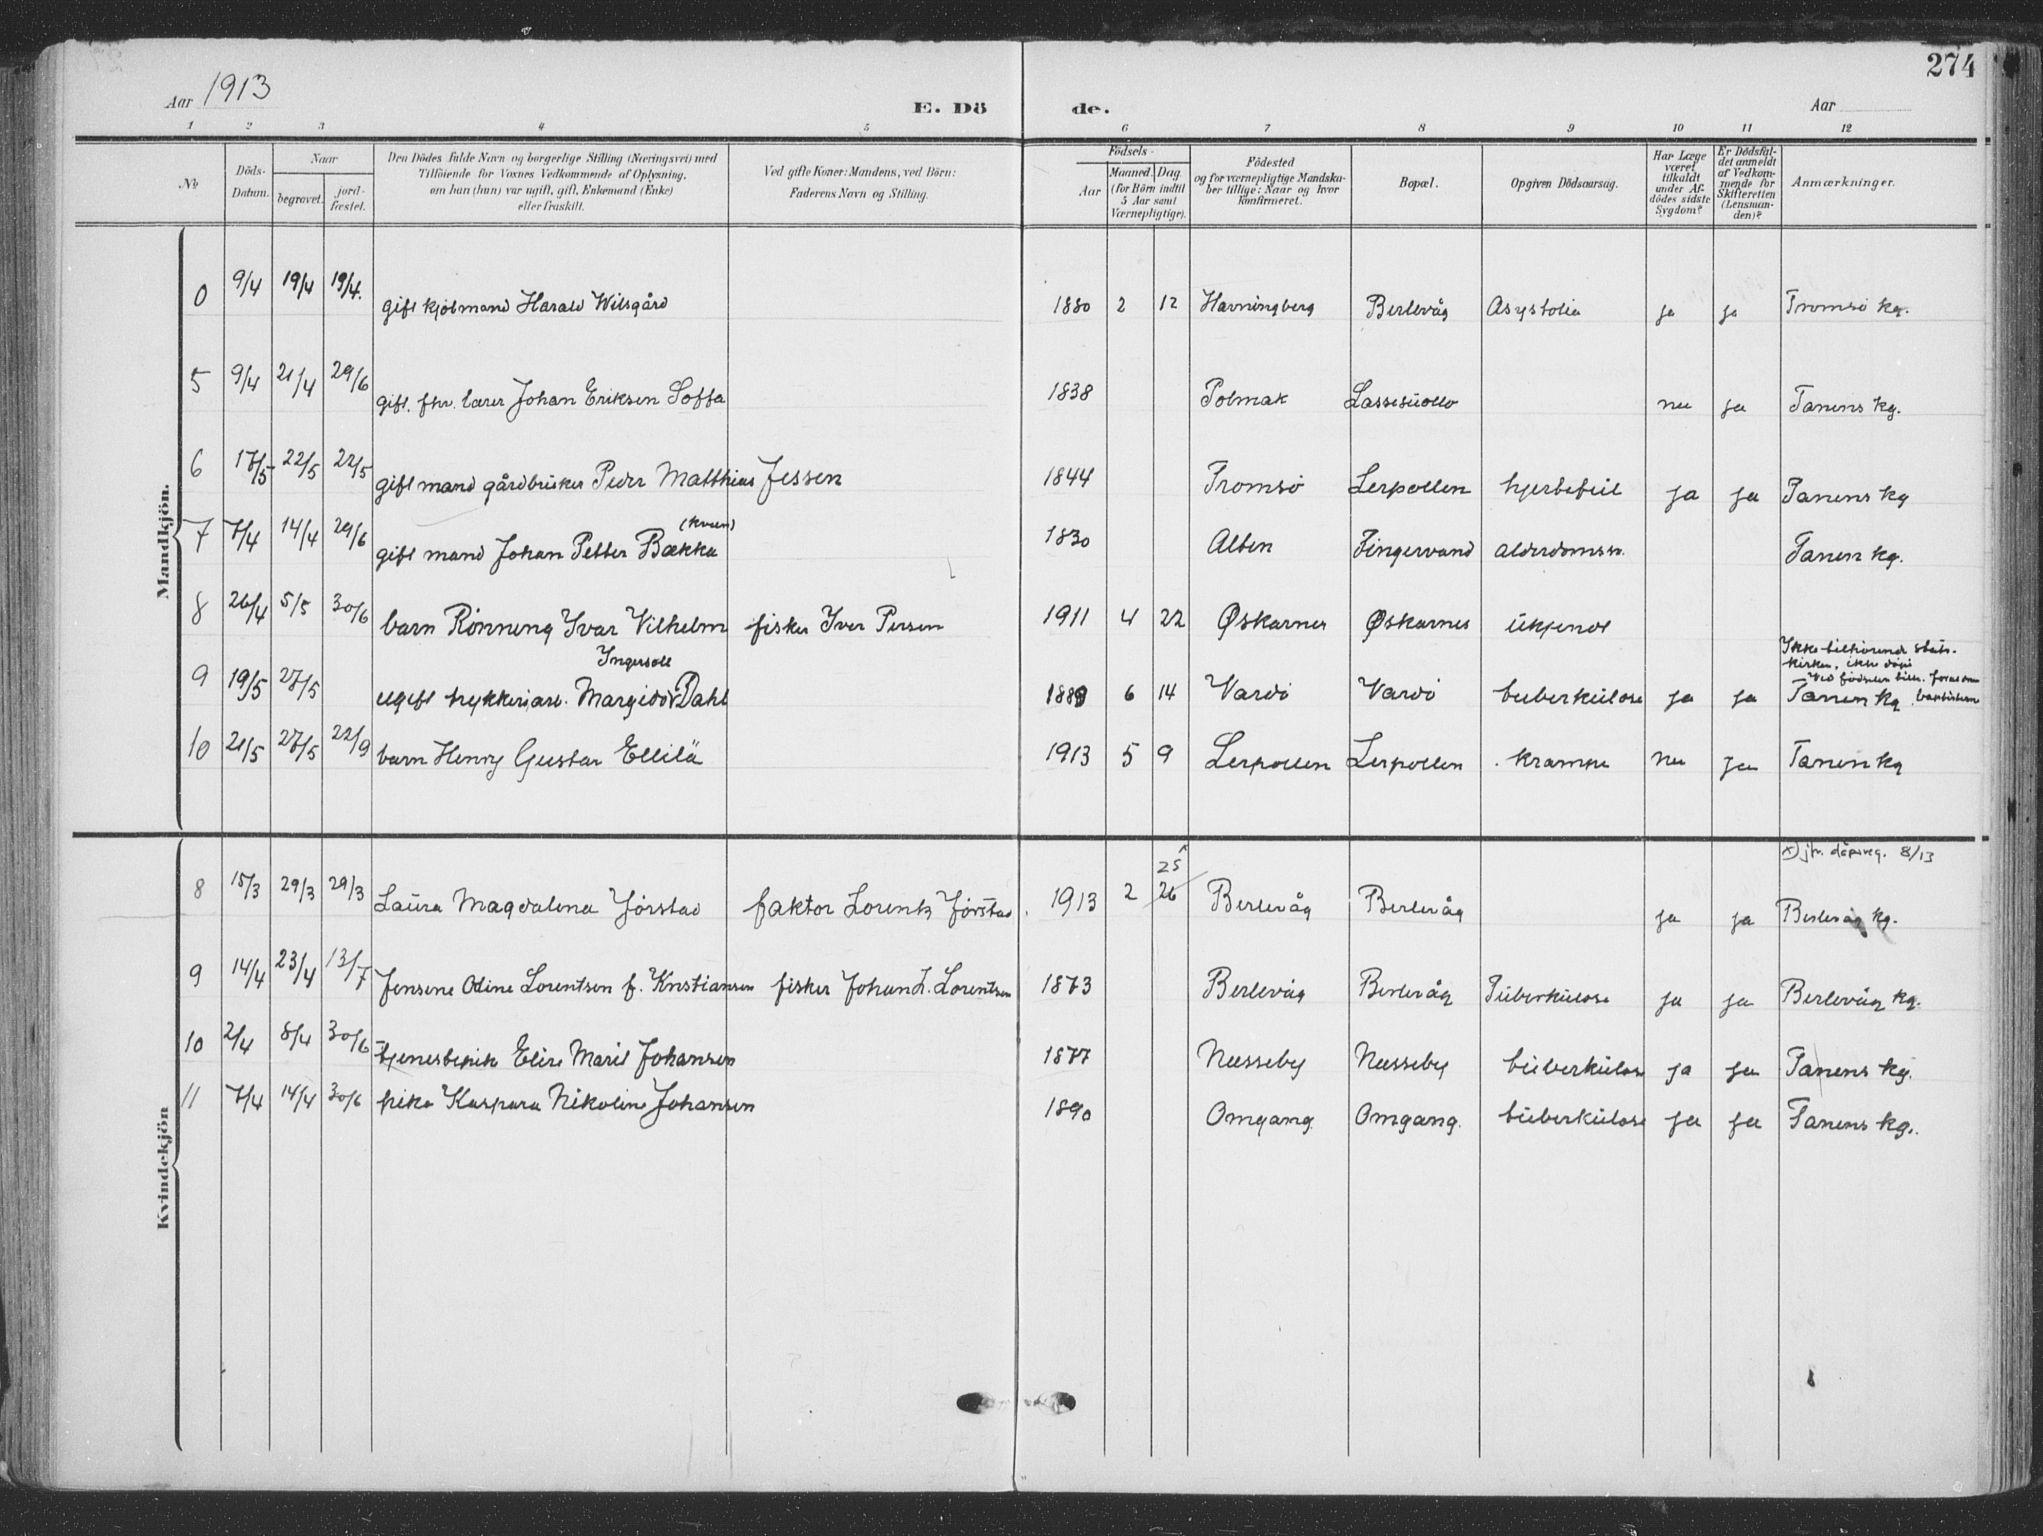 274
Aar 1913
E. Dö de.
Aar
1 2 3 4 5 6 7 8 9 10 11 12
No
Döds-Datum.
Naar
begravet.
jord-fæstet.
Den Dödes fulde Navn og borgerlige Stilling (Næringsvei) med
Tilföiende for Voxnes Vedkommende af Oplysning,
om han (hun) var ugift, gift, Enkemand (Enke)
eller fraskilt.
Ved gifte Koner: Mandens, ved Börn:
Faderens Navn og Stilling.
Födsels-
Aar
Maaned. Dag
(for Börn indtil
5 Aar samt
Værnepligtige).
Födested
og for værnepligtige Mandska-
ber tillige: Naar og hvor
Konfirmeret.
Bopæl.
Opgiven Dödsaarsag.
Har Læge
været
tilkaldt
under Af-
dödes sidste
Sygdom?
Er Dödsfal-
det anmeldt
af Vedkom-
mende for
Skifteretten
(Lensman-
den)?
Anmærkninger.
Mandkjön.
0 9/4 19/4 19/4. gift kjøbmand Harald Wilsgård 1880 2 12 Havningberg Berlevåg Asystolia ja ja Tromsø kg.
5 9/4 21/4 29/6 gift. fhv. lærer Johan Eriksen Soffa 1838 Polmak nei ja Tanens kg.
6 17/5 22/5 22/5 gift mand gårdbruker Peder Matthias Jessen 1844 Tromsø Lerpollen hjertefeil ja ja Tanens kg
(kvæn)
7 7/4 14/4 29/6 gift mand Johan Petter Bækka 1830 Alten Fingervand alderdomssv. Tanen kg.
8 26/4 5/5 30/6 barn Rønning Ivar Vilhelm fisker Iver Persen 1911 4 22 Øskarnes Øskarnes ukjendt
Ingersoll
Ikke tilhørende stats-
kirken, ikke døpt
9 19/5 27/5 ugift trykkeriarb. Margido Dahl 1889 6 14 Vardø Vardø tuberkulose ja ja Tanen kg
10 21/5 27/5 22/9 barn Henry Gustav Ellilä 1913 5 9 Lerpollen Lerpollen krampe nei ja Tanen kg
Kvindekjön
x) jfr. dåpsreg. 8/13
25 x
8 15/3 29/3 29/3 Laura Magdalena Jørstad faktor Lorentz Jørstad. 1913 2 26 Berlevåg Berlevåg ja ja Berlevåg kg.
9 14/4 23/4 13/7 Jensine Odine Lorentsen f. Kristiansen fisker Johan L. Lorentsen 1873 Berlevåg Berlevåg Tuberkulose ja ja Berlevåg kg.
10 2/4 8/4 30/6 tjenestepik Elire Marit Johansen 1877 Næsseby Næsseby tuberkulose ja ja Tanens kg.
11 7/4 14/4 30/6 pike Kaspara Nikoline Johansen 1890 Omgang Omgang. tuberkulose ja ja Tanens kg.